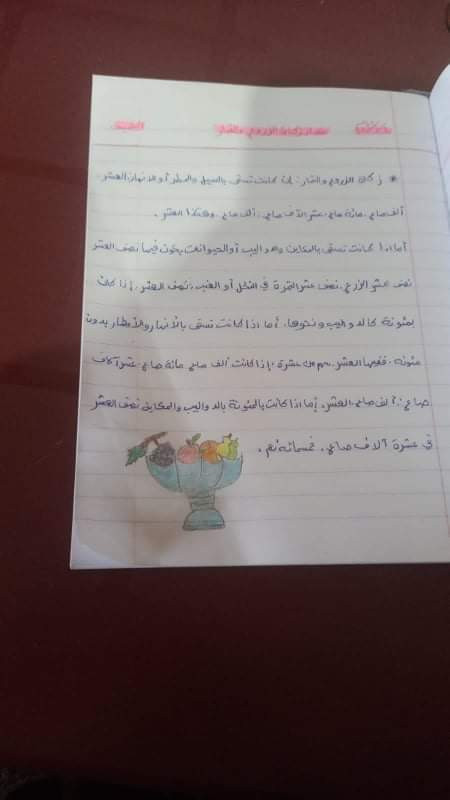 زكاة الزروع والثمار: إن كانت تسقى بالسيل والمطر أو الأنهار العشر.
ألف صاع، مائة صاع، عشر آلاف صاع، ألف صاع، وهكذا العشر.
أما إذا كانت تسقى بالمكاين والدواليب أو الحيوانات يكون فيها نصف العشر
نصف عشر الزرع، نصف عشر الثمرة في النخل أو العنب، نصف العشر. إذا كان
بمئونة كالدواليب ونحوها، أما إذا كانت تسقى بالأنهار والأمطار بدون
مئونة، ففيها العشر، سهم من عشرة، إذا كانت ألف صاع مائة صاع، عشر آلاف
صاع: ألف صاع، العشر، أما إذا كانت بالمئونة بالدواليب والمكاين نصف العشر
في عشرة آلاف صاع، خمسمائة نعم.